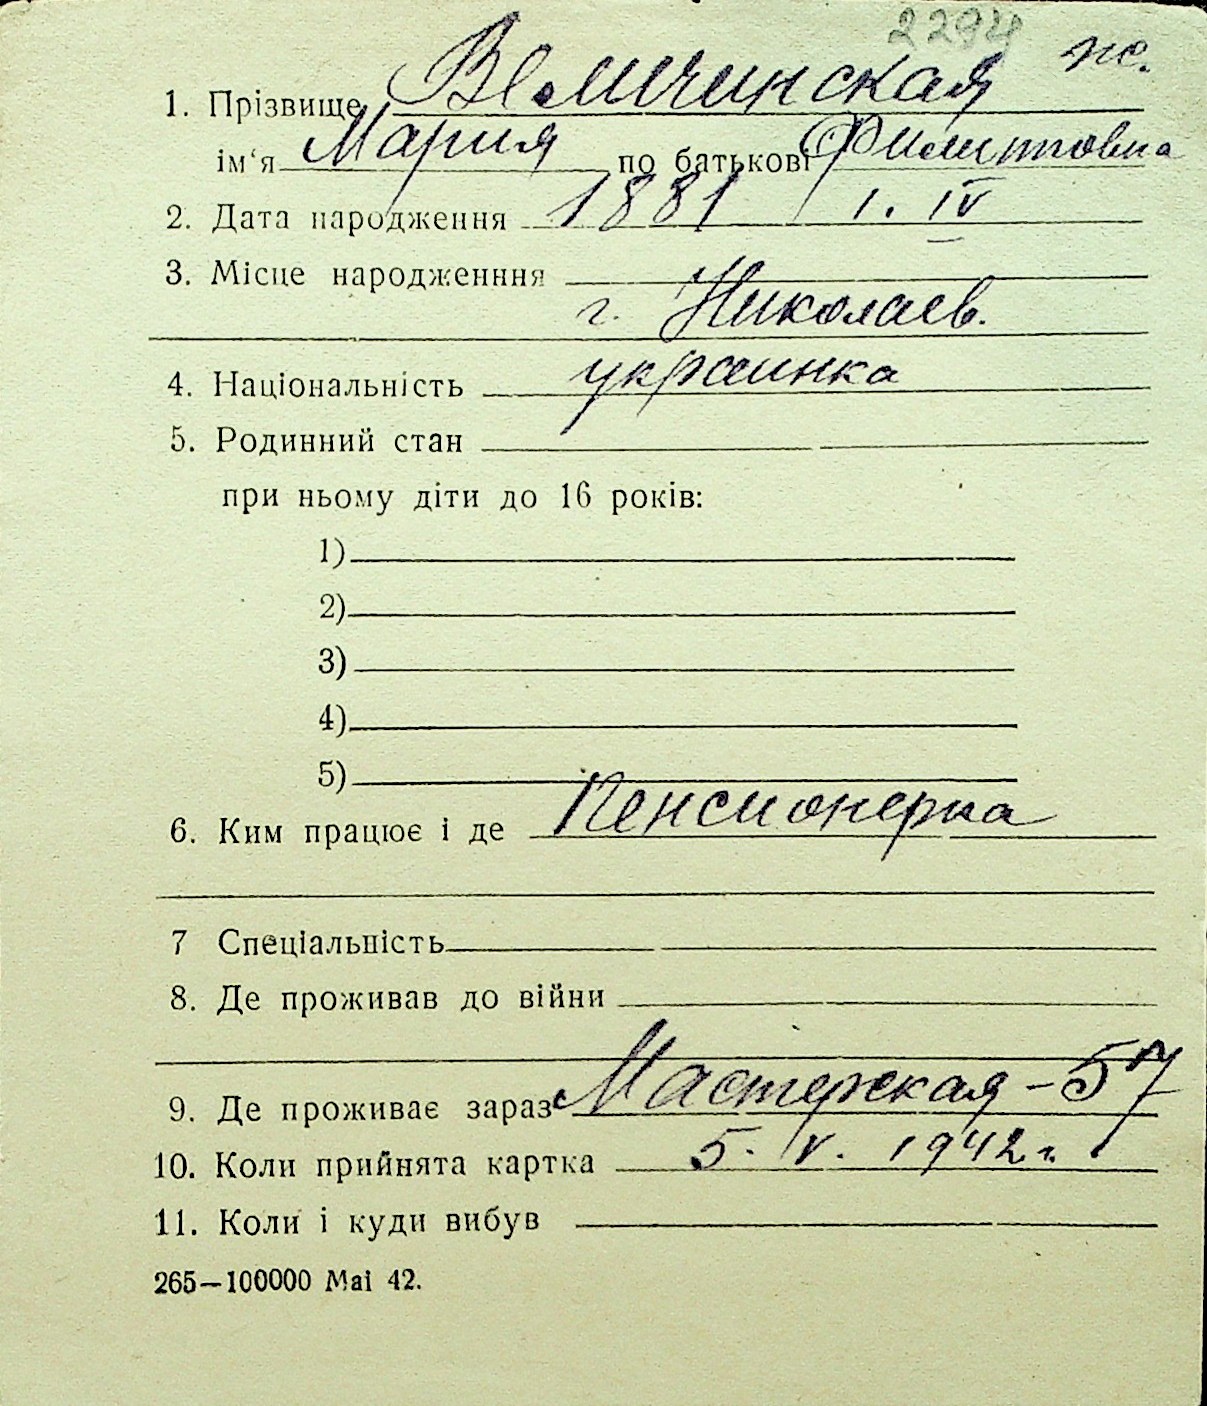 2294 ж.
1. Прізвище Величинская
ім‘я Мария по батькові Филипповна
2. Дата народження 1881 1. IV
3. Місце народженння
г. Николаев.
4. Національність украинка
5. Родинний стан
при ньому діти до 16 років:
1)
2)
3)
4)
5)
6. Ким працює і де Пенсионерка
7 Спеціальність
8. Де проживав до війни
9. Де проживає зараз Мастерская - 57
10. Коли прийнята картка 5. V. 1942 г.
11. Коли і куди вибув
265—100000 Маі 42.